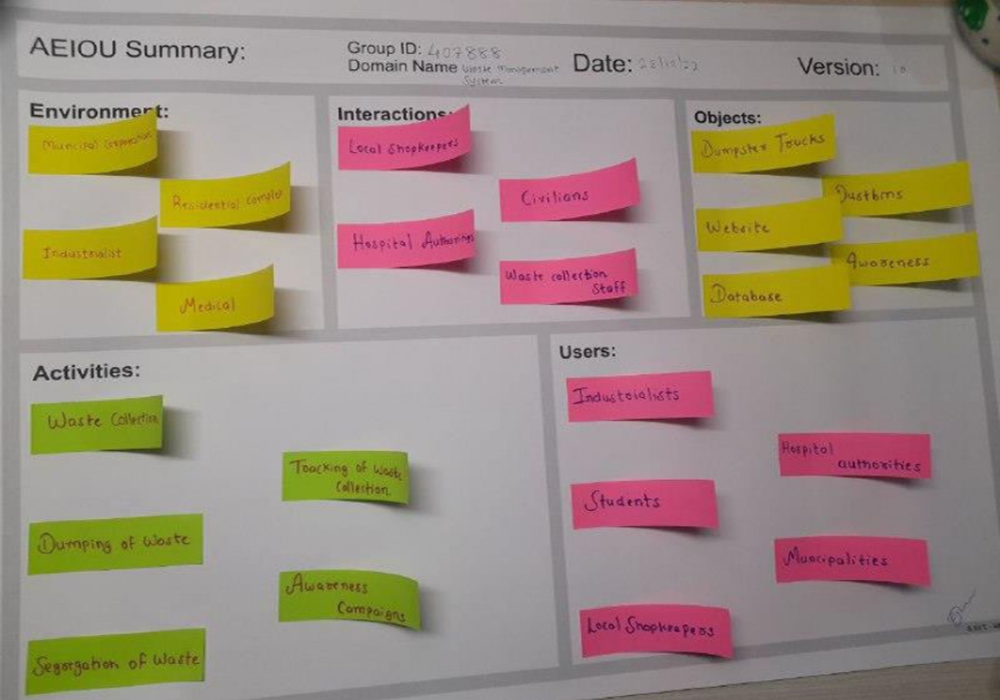 AEIOU Summary:
Group ID: 407888
Domain Name Waste Management
System
Date:
Version:
Environment:
Residential Complex
Industrialist
Medical
Interactions:
Local Shopkeepers
Civilians
Hospital Authorities
Waste collection
Staff
Objects:
Dumpster Trucks
Dustbins
Website
Awareness
Database
Activities:
Waste Collection
Tracking of Waste
Collection
Dumping of Waste
Awareness
Campaigns
Segregation of Waste
Users:
Industrialists
Hospital
authorities
Students
Municipalities
Local Shopkeepers